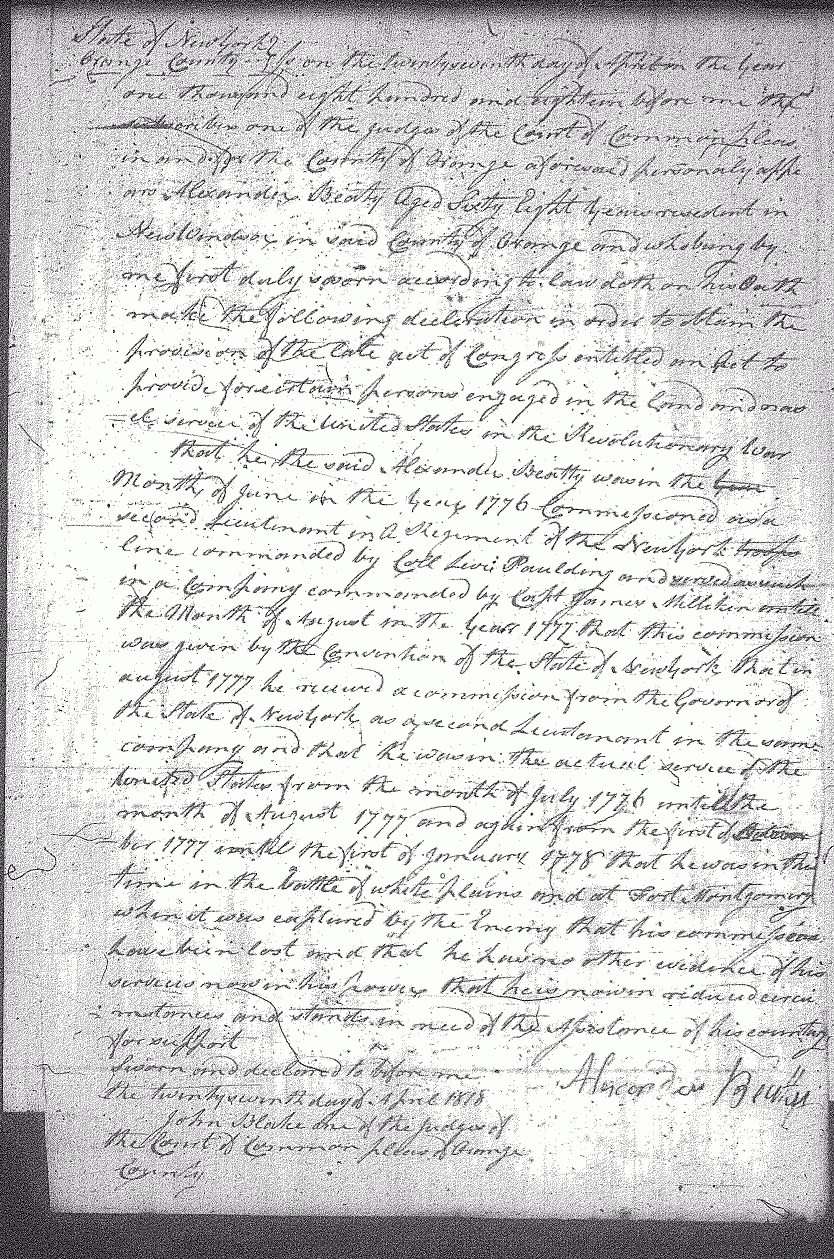 State of New York
Orange County ss on the twenty seventh day of April in the year
one thousand eight hundred and eighteen before me the
subscriber one of the judges of the Court of Common pleas
in and for the County of Orange aforesaid personaly appe
ars Alexander Beatty Aged Sixty Eight years resedent in
New Windsor in said County of Orange and who being by
me first duly sworn according to law doth on his Oath
make the following decleration in order to obtain the
provision of the late act of Congress entitled an Act to
provide for certain persons engaged in the land and nav
el service of the United States in the Revolutionary War
that he the said Alexander Beatty was in the
Month of June in the year 1776 Commissioned as a
second Lieutenant in A Regiment of the New York troops
line commanded by Coll Levi Paulding and served as such
in a Company commanded by Capt James Milliken untill
the Month of August in the year 1777 that this commission
was given by the Convention of the State of New York that in
august 1777 he receved a commission from the Governor of
the State of New York as a second Lieutanant in the same
company and that he was in the actual service of the
United States from the month of July 1776 untill the
month of August 1777 and again from the first of
ber 1777 until the first of January 1778 that he was in this
time in the battle of white plains and at Fort Montgomery
when it was captured by the Enemy that his commissions
have been lost and that he has no other evidence of his
services now in his power that he is now in reduced circu
mstances and stands in need of the Assistance of his country
for support
Sworn and declared to before me
the twenty seventh day of April 1818
Alexander Beatty
John Blake one of the judges of
the Court of Common pleas of Orange
County